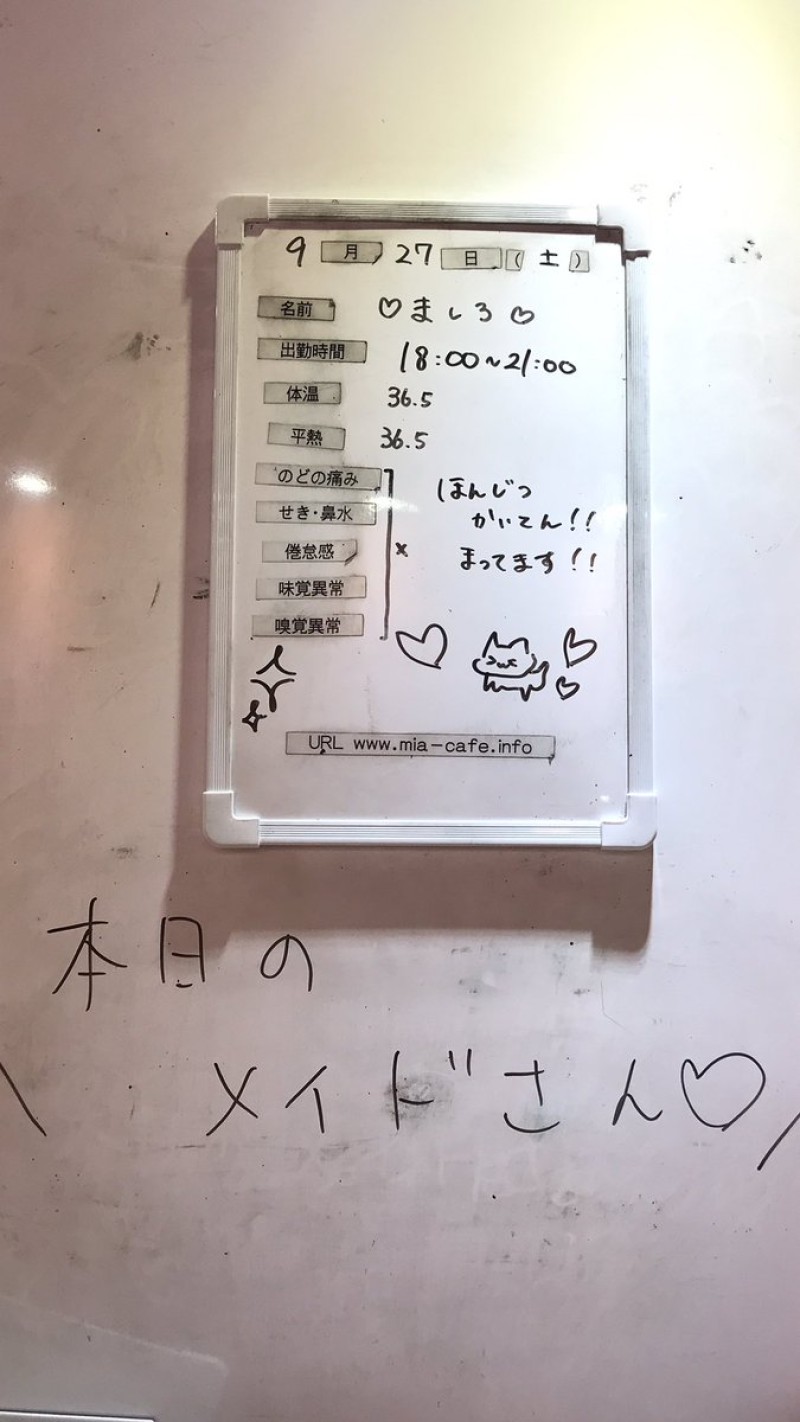 9月27日(土)
名前 ♡ましろ♡
出勤時間 18:00~21:00
体温 36.5
平熱 36.5
のどの痛み
せき・鼻水
倦怠感 ×
味覚異常
嗅覚異常
ほんじつ
かいてん!!
まってます!!
URL www.mia-cafe.info
本日の
\ メイドさん♡ /